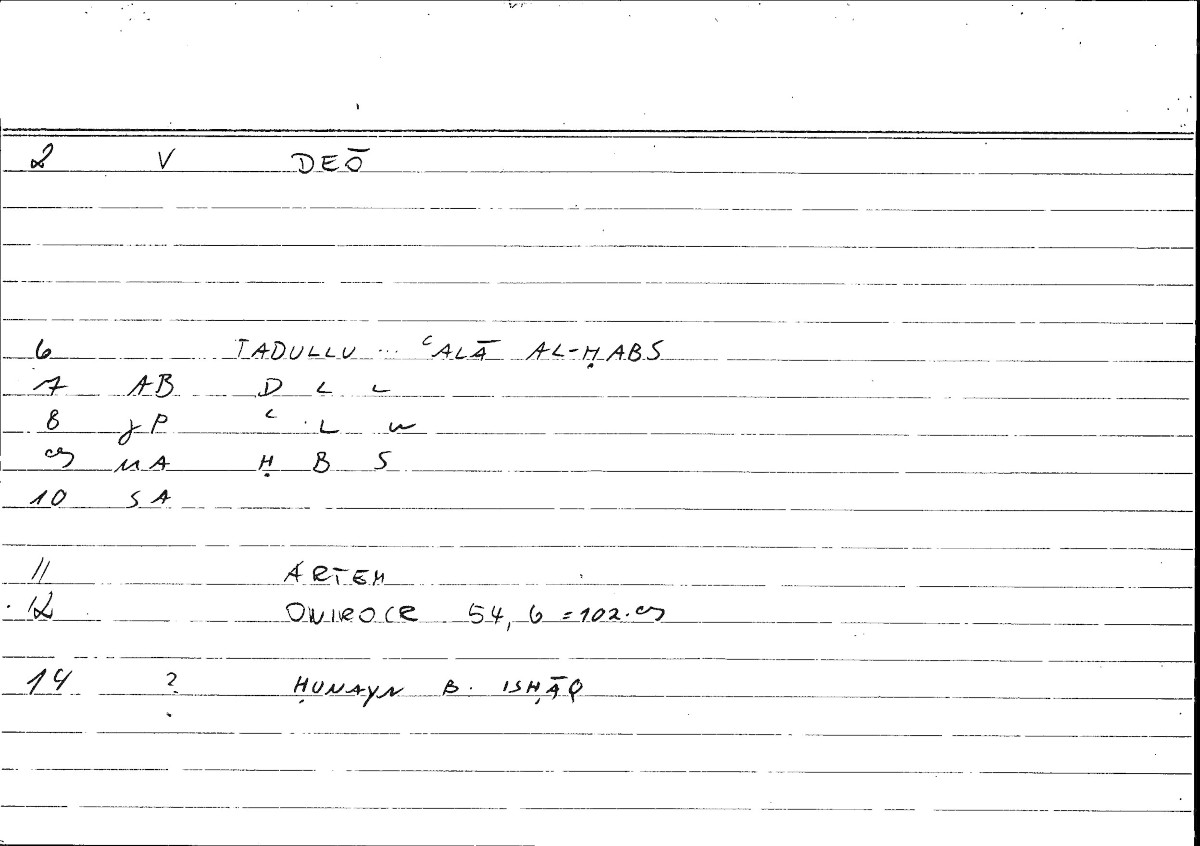 2 V DEŌ
6 TADULLU ... ʿALĀ AL-ḤABS
7 AB D L L
8 γP ʿ L W
9 MA Ḥ B S
10 SA
11 ARTEM
12 ONIROCR 54, 6 = 102.9
14 ? ḤUNAYN B. ISḤĀQ